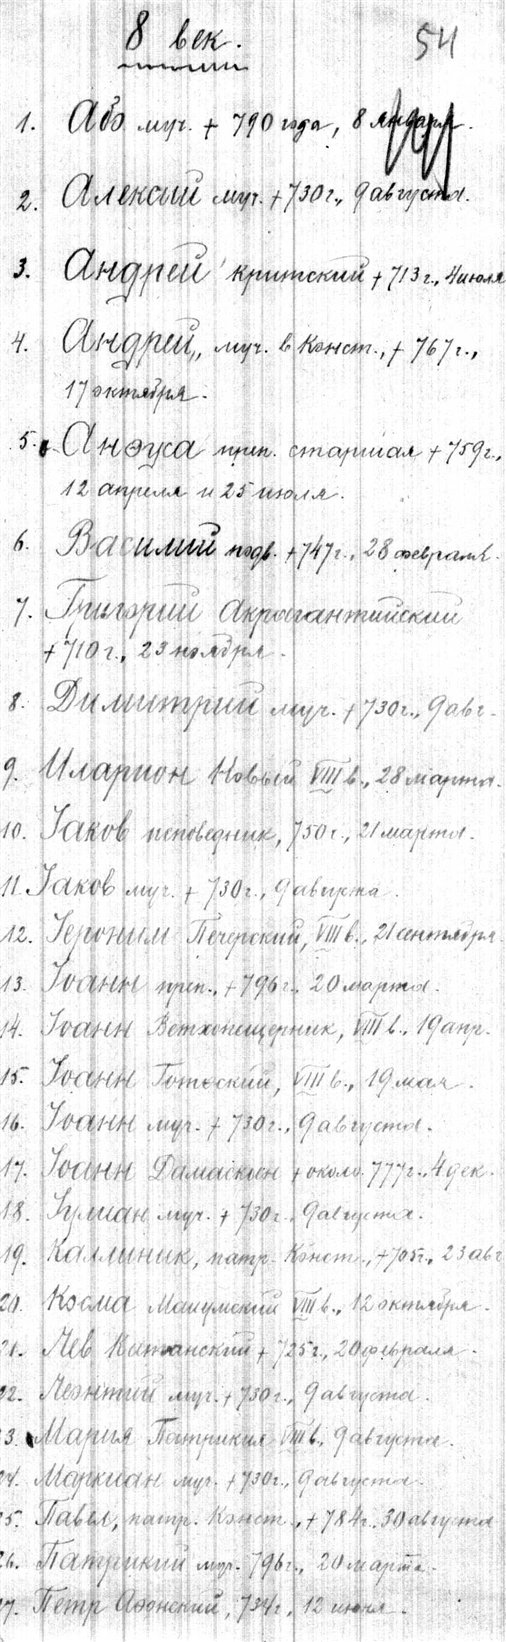 8 век.
54
1. Або муч. + 790 года, 8 января.
2. Алексий муч. + 730 г., 9 августа.
3. Андрей критский + 713 г., 4 июля
4. Андрей, муч. в Конст., + 767 г.,
17 октября.
5. Анфуса преп. старшая + 759 г.,
12 апреля и 25 июля.
6. Василий исдв. + 747 г., 28 февраля.
7. Григорий Акрагантийский
+ 710 г., 23 ноября.
8. Димитрий муч. + 730 г., 9 авг.
9. Иларион Новый VIII в., 28 марта.
10. Іаков исповедник, 750 г., 21 марта.
11. Іаков муч. + 730 г., 9 августа.
12. Іероним Печерский, VIII в., 21 сентября.
13. Іоанн преп., + 796 г., 20 марта.
14. Іоанн Ветхопещерник, VIII в., 19 апр.
15. Іоанн Готфский, VIII в., 19 мая.
16. Іоанн муч. + 730 г., 9 августа.
17. Іоанн Дамаскин + около 777 г., 4 дек.
18. Іулиан муч. + 730 г., 9 августа.
19. Каллиник, патр. Конст., + 705 г., 23 авг
20. Косма Маиумский VIII в., 12 октября.
21. Лев Катанский + 725 г., 20 февраля.
22. Леонтий муч. + 730 г., 9 августа.
23. Мария Патрикия VIII в., 9 августа.
24. Маркиан муч. + 730 г., 9 августа.
25. Павел, патр. Конст., + 784 г. 30 августа
26. Патрикий муч. 796 г., 20 марта.
27. Петр Афонский, 734 г., 12 июня.